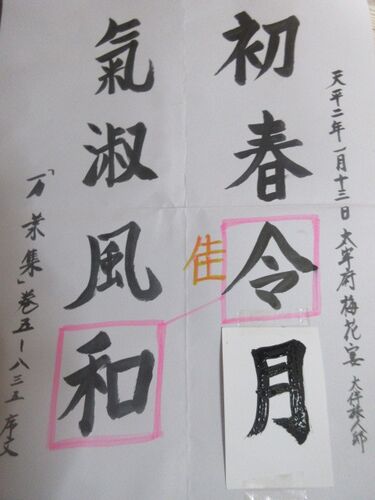 天平二年一月十三日 太宰府梅花宴 大伴旅人邸
初春令月
佳
氣淑風和
「万葉集」巻五-八三五 序文